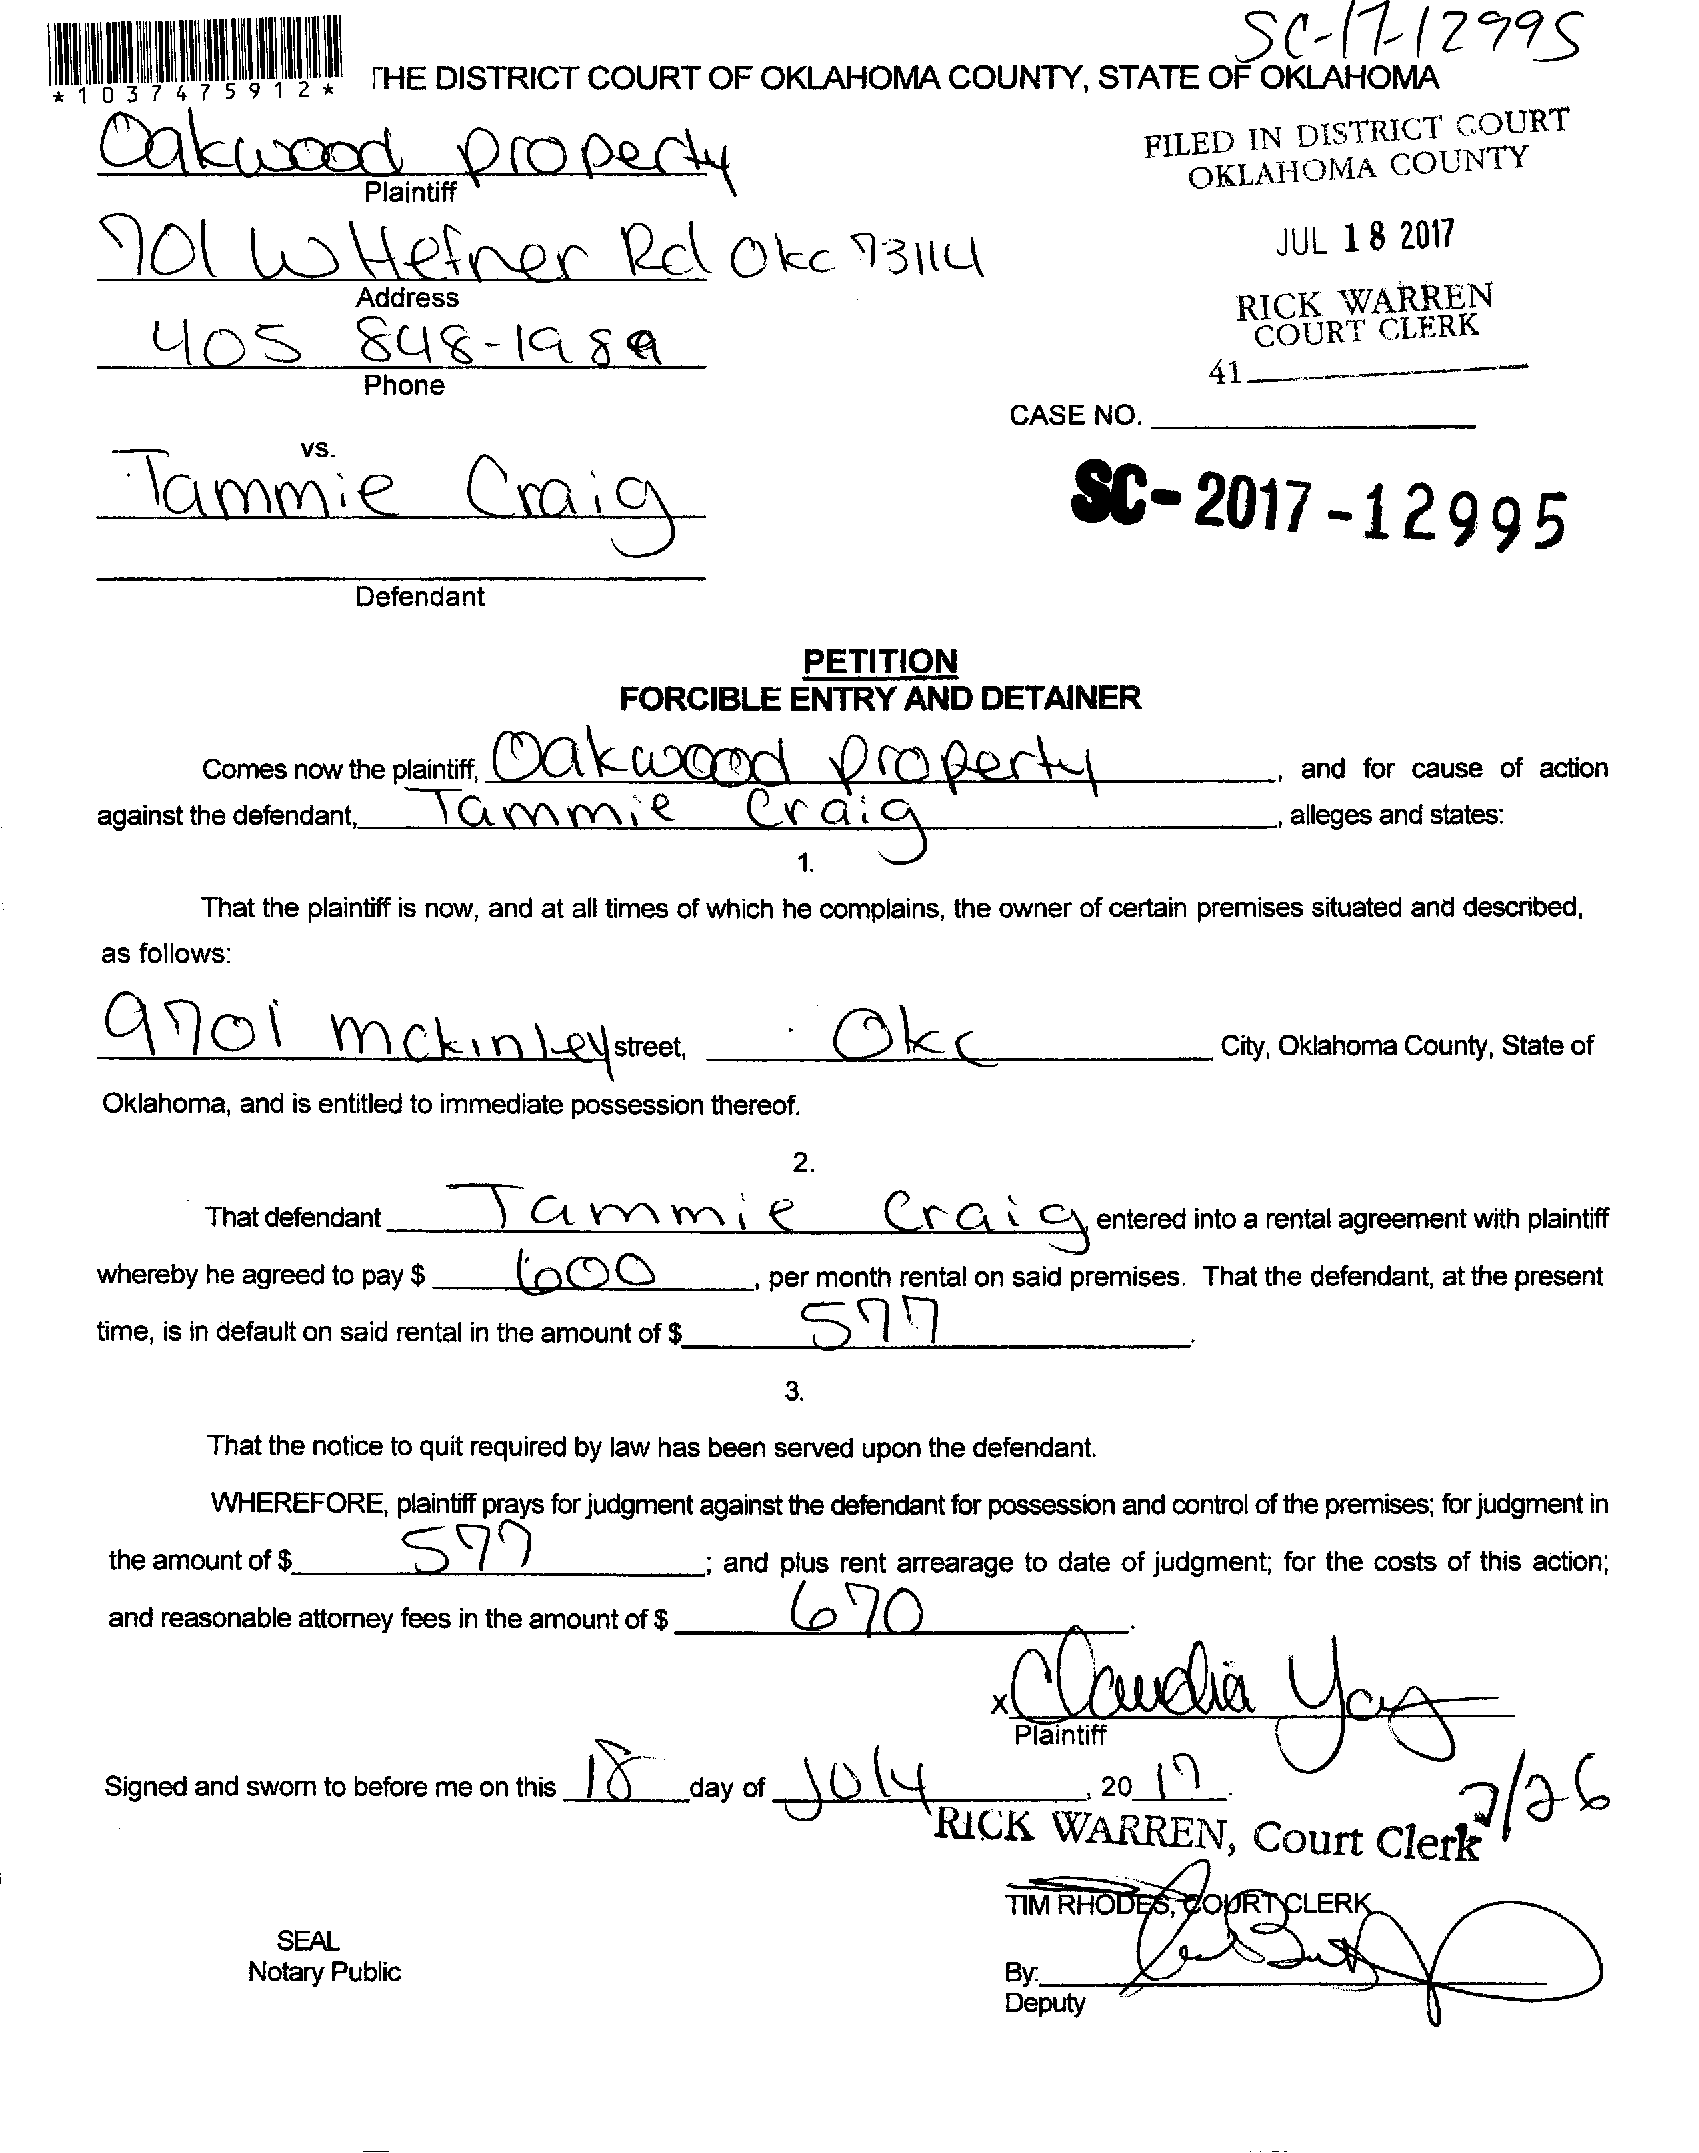 SC-17-12995
*1037475912*
THE DISTRICT COURT OF OKLAHOMA COUNTY, STATE OF OKLAHOMA
Oakwood property
Plaintiff
FILED IN DISTRICT COURT
OKLAHOMA COUNTY
701 W Hefner Rd Okc 73114
Address
JUL 18 2017
405 848-1989
Phone
RICK WARREN
COURT CLERK
41
CASE NO.
vs.
Tammie Craig
SC-2017-12995
Defendant
PETITION
FORCIBLE ENTRY AND DETAINER
Comes now the plaintiff, Oakwood property, and for cause of action
against the defendant, Tammie Craig, alleges and states:
1.
That the plaintiff is now, and at all times of which he complains, the owner of certain premises situated and described,
as follows:
9701 mckinley street, Okc City, Oklahoma County, State of
Oklahoma, and is entitled to immediate possession thereof.
2.
That defendant Tammie Craig entered into a rental agreement with plaintiff
whereby he agreed to pay $ 600, per month rental on said premises. That the defendant, at the present
time, is in default on said rental in the amount of $ 577.
3.
That the notice to quit required by law has been served upon the defendant.
WHEREFORE, plaintiff prays for judgment against the defendant for possession and control of the premises; for judgment in
the amount of $ 577; and plus rent arrearage to date of judgment; for the costs of this action;
and reasonable attorney fees in the amount of $ 670.
x Claudia
Plaintiff
Signed and sworn to before me on this 18 day of July, 20 17.
7/26
RICK WARREN, Court Clerk
TIM RHODES, COURT CLERK
SEAL
Notary Public
By:
Deputy